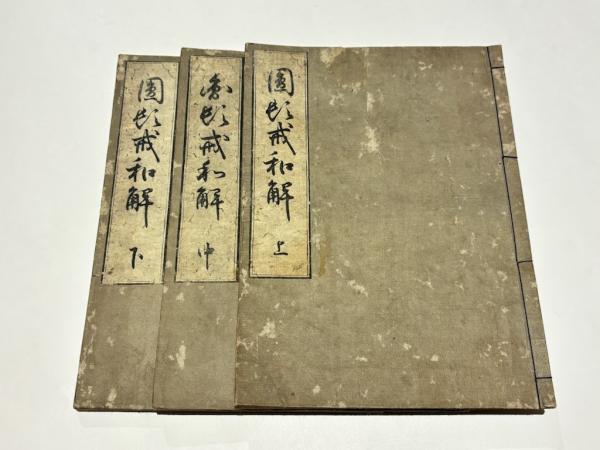 圓頓戒和解 上
圓頓戒和解 中
圓頓戒和解 下